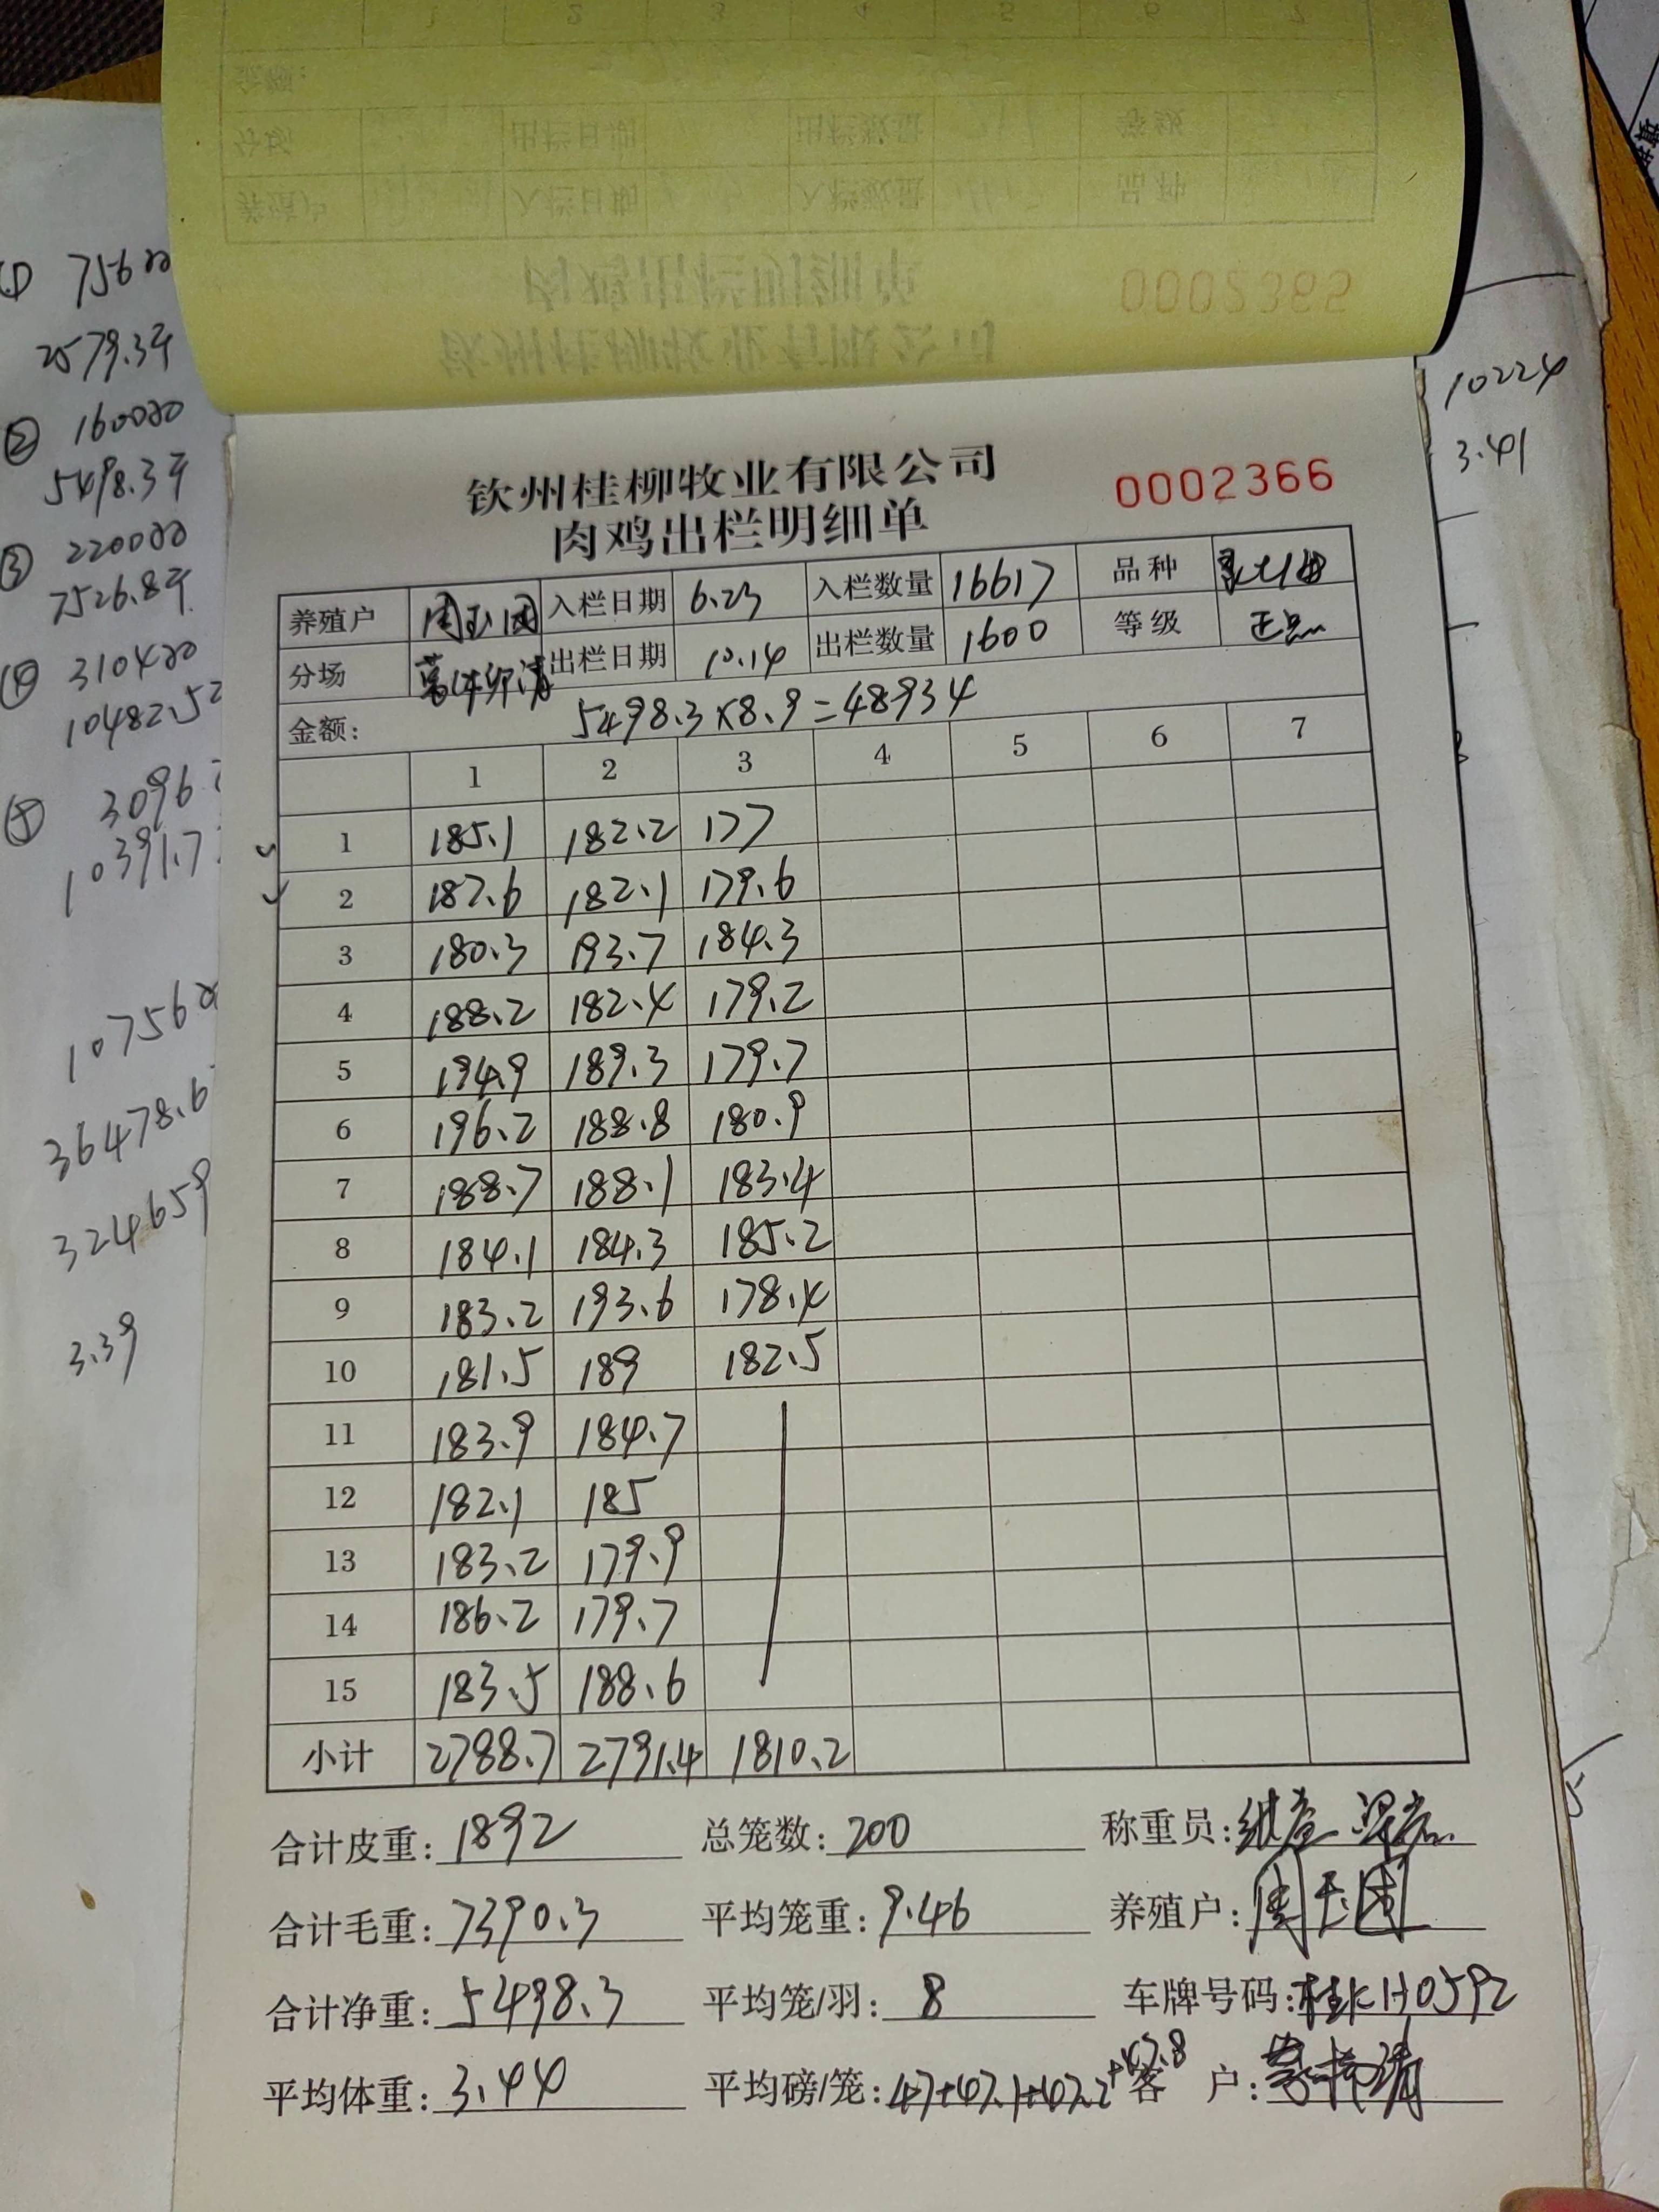 钦州桂柳牧业有限公司
肉鸡出栏明细单
0002366
养殖户 周玉团 入栏日期 6.23 入栏数量 16617 品种
分场 出栏日期 10.14 出栏数量 1600 等级 正品
金额: 5498.3×8.9=48934
1 2 3 4 5 6 7
1 185.1 182.2 177
2 187.6 182.1 179.6
3 180.3 193.7 184.3
4 188.2 182.4 179.2
5 194.9 189.3 179.7
6 196.2 188.8 180.9
7 188.7 188.1 183.4
8 184.1 184.3 185.2
9 183.2 193.6 178.4
10 181.5 189 182.5
11 183.9 184.7
12 182.1 185
13 183.2 179.9
14 186.2 179.7
15 183.5 188.6
小计 2788.7 2791.4 1810.2
合计皮重: 1892 总笼数: 200 称重员:
合计毛重: 7390.3 平均笼重: 9.46 养殖户: 周玉团
合计净重: 5498.3 平均笼/羽: 8 车牌号码: 桂KH0592
平均体重: 3.44 平均磅/笼: 47+47.1+47.2+47.8 客 户:
① 756
2579.3斤
② 1600
5498.3斤
③ 2200
7526.8斤
④ 3104
10482.5
⑤ 3096
10391.7
10756
36478.6
324659
3.39
10224
3.41
0002365